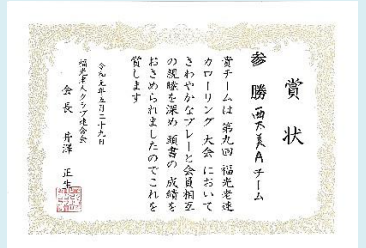 賞状
参勝 西太美Aチーム
貴チームは第九回福光老連
カローリング大会において
さわやかなプレーと会員相互
の親睦を深め頭書の成績を
おさめられましたのでこれを
賞します
令和元年五月二十九日
福光老人クラブ連合会
会長 片澤 正